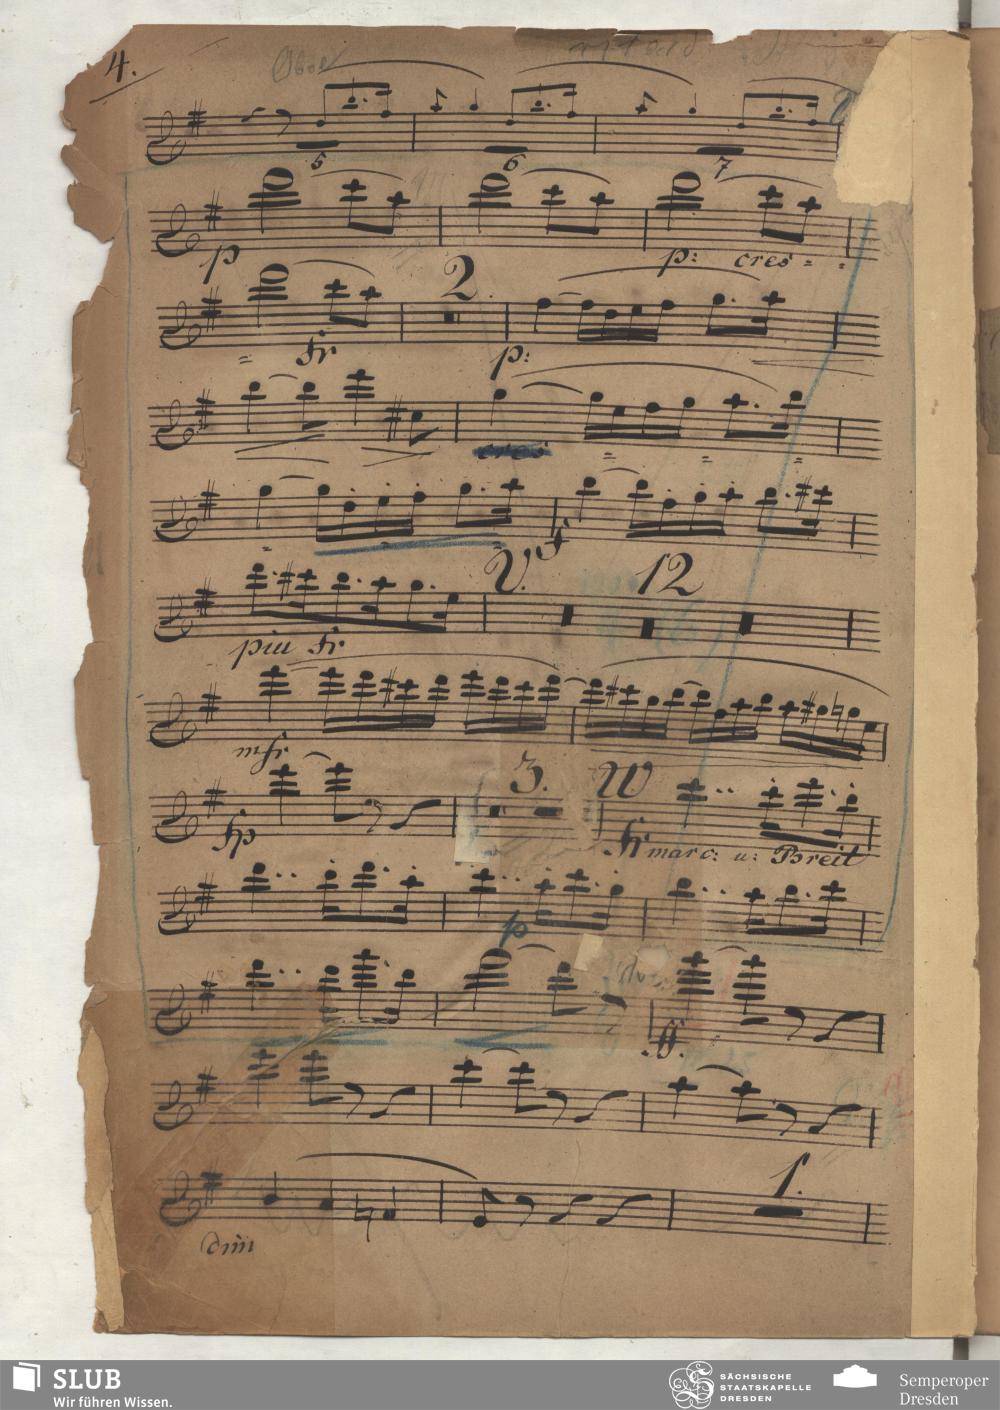 4.
Oboe
5 6 7
p p: cres = =
2.
= fr p:
cres = = =
=
f
V. 12
piu fr
mfr
3. W
fp fr marc: u: Breit
p
ff.
1.
dim
SLUB
Wir führen Wissen.
SÄCHSISCHE
STAATSKAPELLE
DRESDEN
Semperoper
Dresden